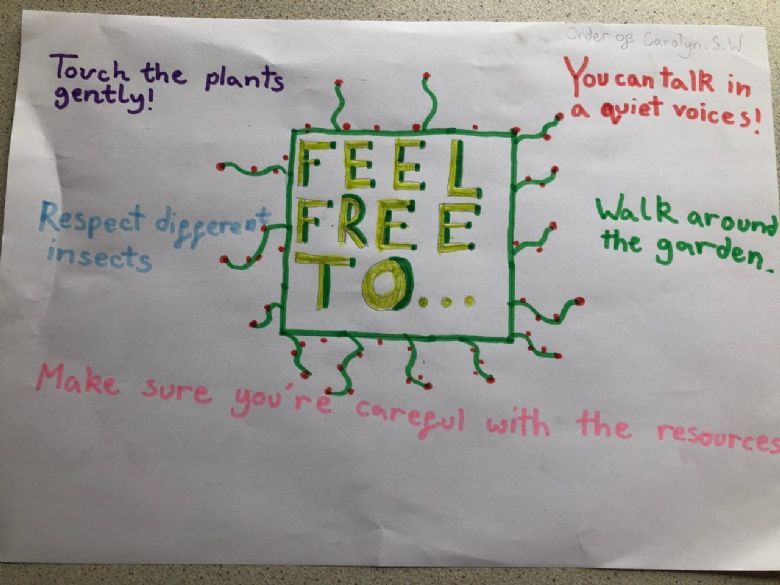 Order of Carolyn.S.W
Touch the plants
gently!
You can talk in
a quiet voices!
FEEL
FREE
TO...
Respect different
insects
Walk around
the garden.
Make sure you're careful with the resources